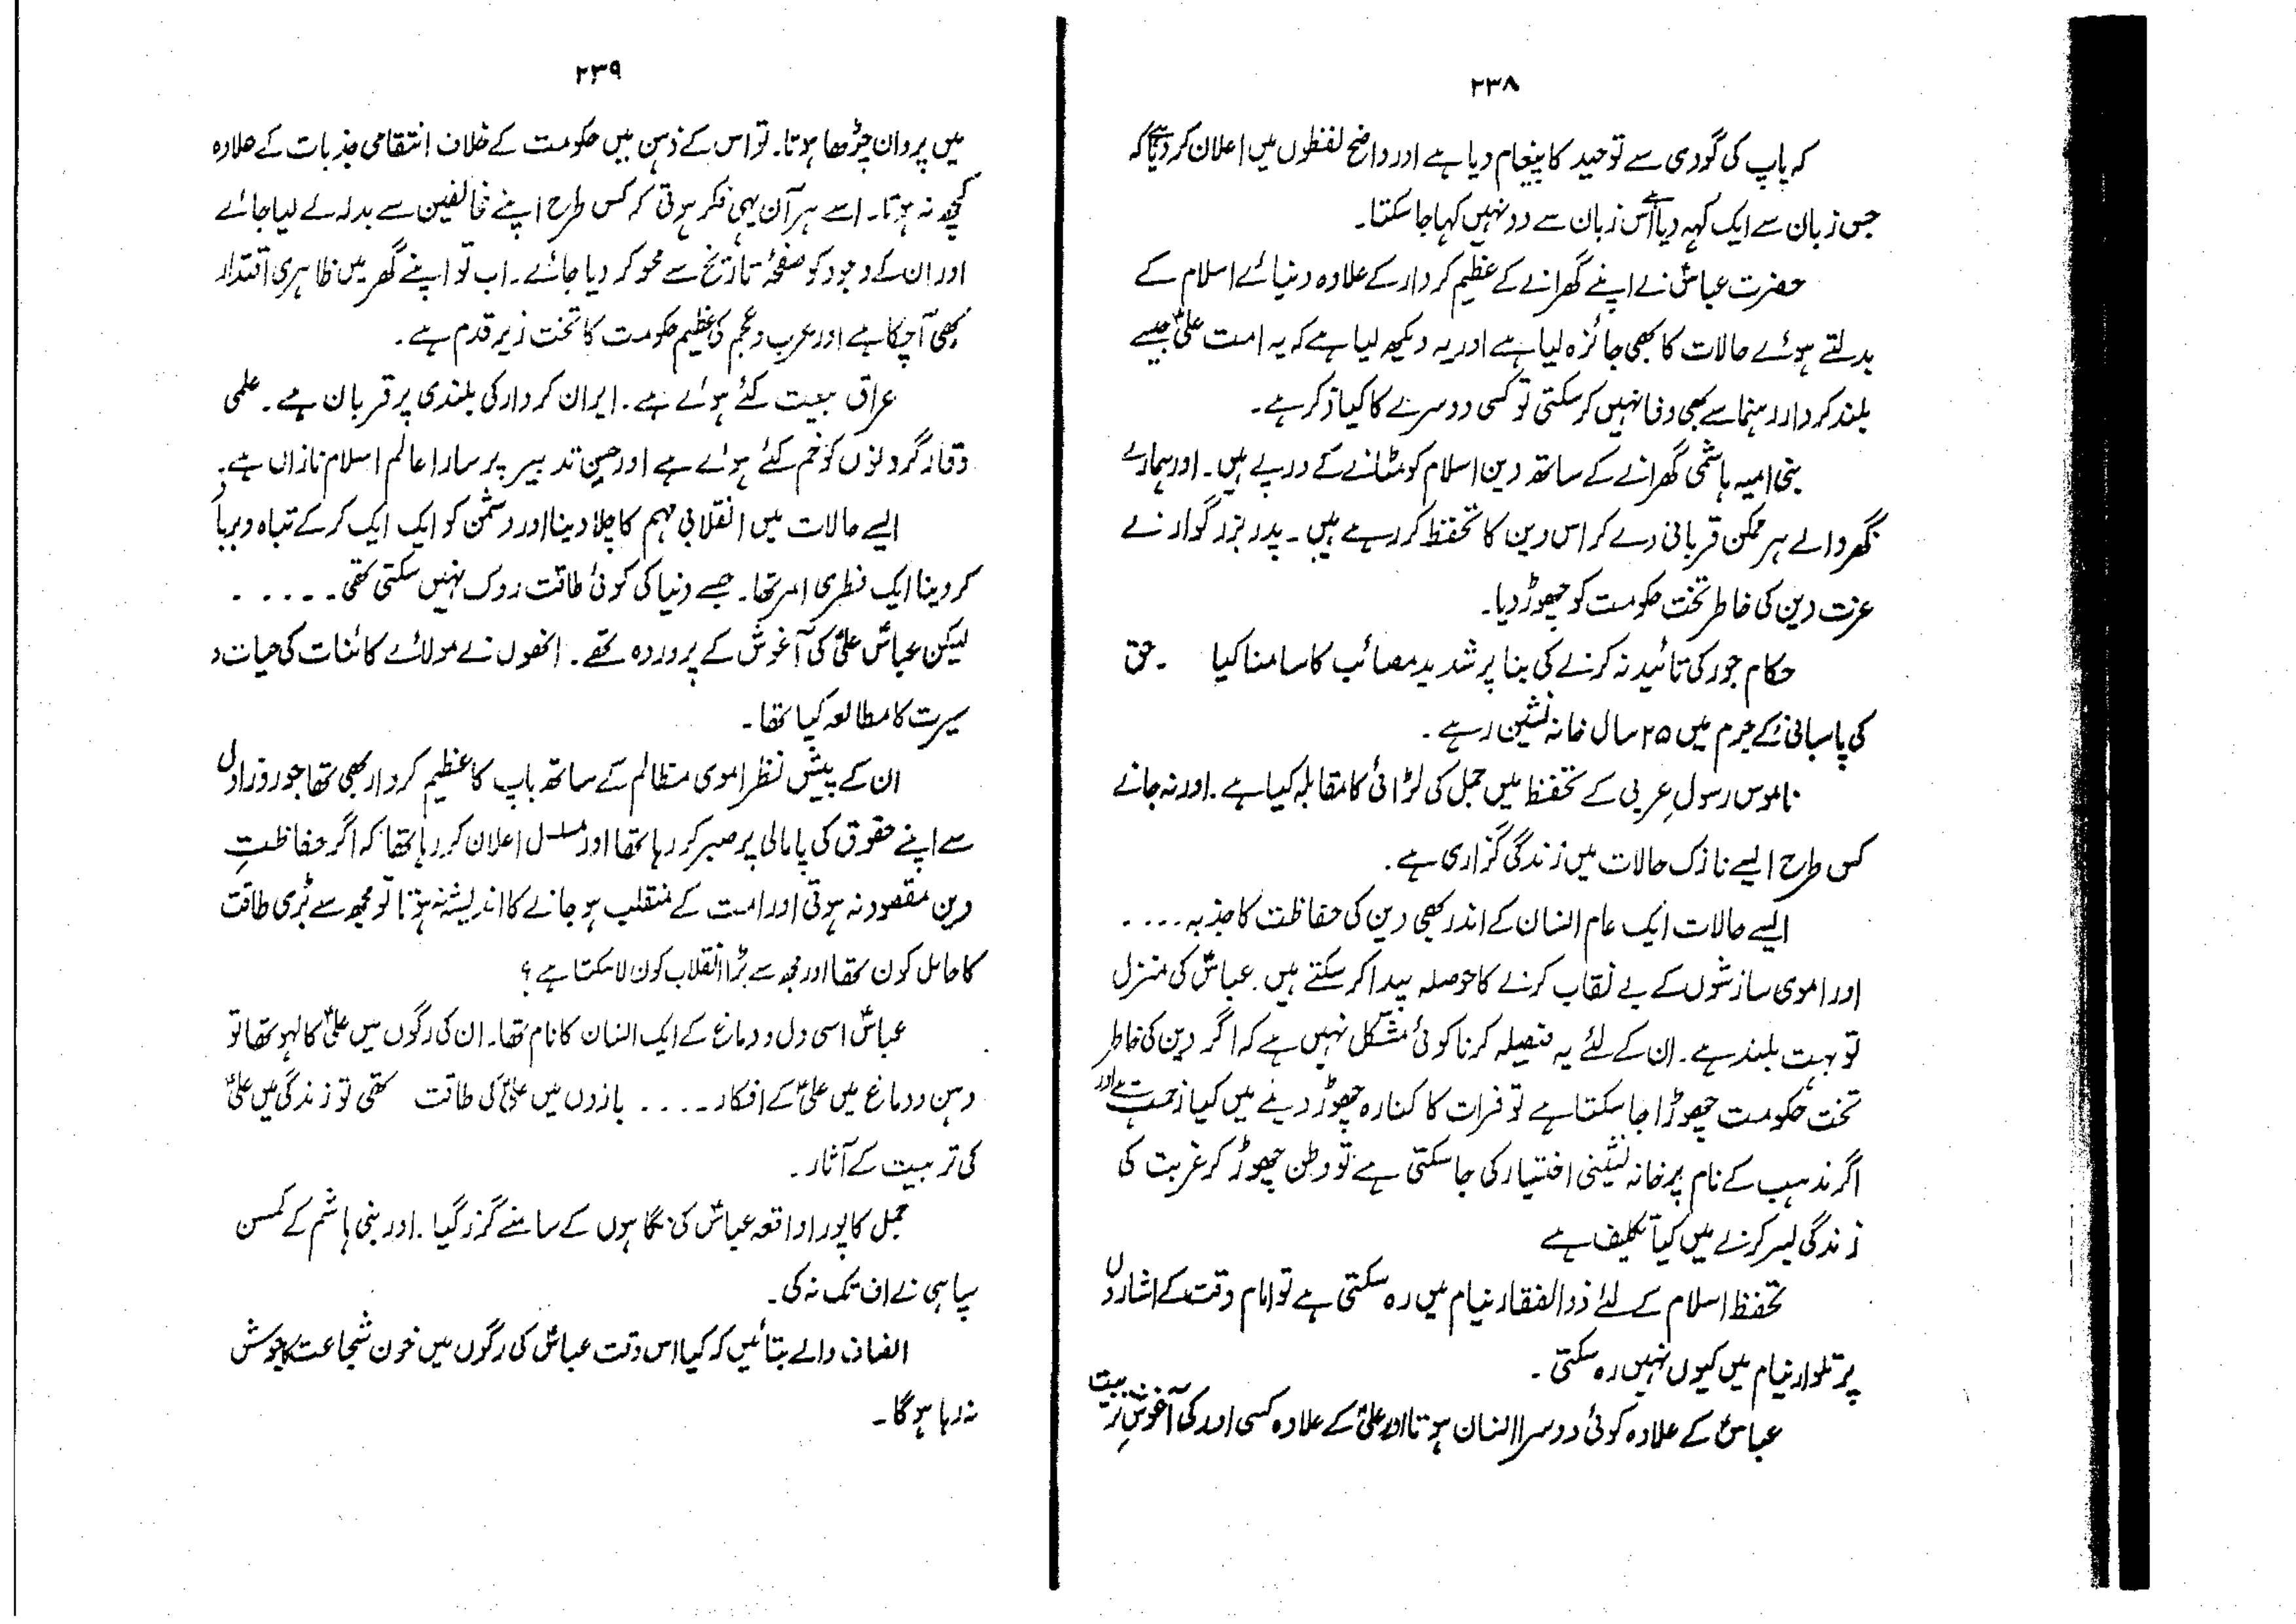 ۲۳۸
کہ باپ کی گودی سے توحید کا پیغام دیا ہے اور واضح لفظوں میں اعلان کر دیا ہے کہ
جس زبان سے ایک کہہ دیا ہے اُس زبان سے دو نہیں کہا جا سکتا۔
حضرت عباسؑ نے اپنے گھرانے کے عظیم کردار کے علاوہ دنیائے اسلام کے
بدلتے ہوئے حالات کا بھی جائزہ لیا ہے اور یہ دیکھ لیا ہے کہ یہ امت علیؑ جیسے
بلند کردار رہنما سے بھی وفا نہیں کر سکتی تو کسی دوسرے کا کیا ذکر ہے۔
بنی امیہ ہاشمی گھرانے کے ساتھ دین اسلام کو مٹانے کے درپے ہیں۔ اور ہمارے
گھر والے ہر ممکن قربانی دے کر اس دین کا تحفظ کر رہے ہیں۔ پدر بزرگوار نے
عزت دین کی خاطر تخت حکومت کو چھوڑ دیا۔
حکام جور کی تائید نہ کرنے کی بنا پر شدید مصائب کا سامنا کیا ۔ حق
کی پاسبانی کے جرم میں ۲۵ سال خانہ نشین رہے۔
ناموس رسولِ عربی کے تحفظ میں جمل کی لڑائی کا مقابلہ کیا ہے۔ اور نہ جانے
کس طرح ایسے نازک حالات میں زندگی گزاری ہے۔
ایسے حالات ایک عام انسان کے اندر بھی دین کی حفاظت کا جذبہ ....
اور اموی سازشوں کے بے نقاب کرنے کا حوصلہ پیدا کر سکتے ہیں۔ عباسؑ کی منزل
تو بہت بلند ہے۔ ان کے لئے یہ فیصلہ کرنا کوئی مشکل نہیں ہے کہ اگر دین کی خاطر
تخت حکومت چھوڑا جا سکتا ہے تو فرات کا کنارہ چھوڑ دینے میں کیا زحمت ہے اور
اگر مذہب کے نام پر خانہ نشینی اختیار کی جا سکتی ہے تو وطن چھوڑ کر غربت کی
زندگی بسر کرنے میں کیا تکلیف ہے
تحفظ اسلام کے لئے ذوالفقار نیام میں رہ سکتی ہے تو امام وقت کے اشاروں
پر تلوار نیام میں کیوں نہیں رہ سکتی۔
عباسؑ کے علاوہ کوئی دوسرا انسان ہوتا اور علیؑ کے علاوہ کسی اور کی آغوشِ تربیت
۲۳۹
میں پروان چڑھا ہوتا۔ تو اس کے ذہن میں حکومت کے خلاف انتقامی جذبات کے علاوہ
کچھ نہ ہوتا۔ اسے ہر آن یہی فکر ہوتی کہ کس طرح اپنے مخالفین سے بدلہ لے لیا جائے
اور ان کے وجود کو صفحۂ تاریخ سے محو کر دیا جائے۔ اب تو اپنے گھر میں ظاہری اقتدار
بھی آ چکا ہے اور عرب و عجم کی عظیم حکومت کا تخت زیر قدم ہے۔
عراق بیعت کئے ہوئے ہے۔ ایران کردار کی بلندی پر قربان ہے۔ علمی
وقار گردنوں کو خم کئے ہوئے ہے اور حسن تدبیر پر سارا عالم اسلام نازاں ہے۔
ایسے حالات میں انقلابی مہم کا چلا دینا اور دشمن کو ایک ایک کر کے تباہ و برباد
کر دینا ایک فطری امر تھا۔ جسے دنیا کی کوئی طاقت روک نہیں سکتی تھی۔ .....
لیکن عباسؑ علیؑ کی آغوش کے پروردہ تھے۔ انھوں نے مولائے کائنات کی حیات و
سیرت کا مطالعہ کیا تھا۔
ان کے پیش نظر اموی مظالم کے ساتھ باپ کا عظیم کردار بھی تھا جو روز اول
سے اپنے حقوق کی پامالی پر صبر کر رہا تھا اور مسلسل اعلان کر رہا تھا کہ اگر حفاظتِ
دین مقصود نہ ہوتی اور امت کے منقلب ہو جانے کا اندیشہ نہ ہوتا تو مجھ سے بڑی طاقت
کا حامل کون تھا اور مجھ سے بڑا انقلاب کون لا سکتا ہے؟
عباسؑ اسی دل و دماغ کے ایک انسان کا نام تھا۔ ان کی رگوں میں علیؑ کا لہو تھا تو
ذہن و دماغ میں علیؑ کے افکار ..... بازوں میں علیؑ کی طاقت تھی تو زندگی میں علیؑ
کی تربیت کے آثار۔
جمل کا پورا واقعہ عباسؑ کی نگاہوں کے سامنے گزر گیا۔ اور بنی ہاشم کے کمسن
سپاہی نے اف تک نہ کی۔
انصاف والے بتائیں کہ کیا اس وقت عباسؑ کی رگوں میں خون شجاعت کا جوش
نہ رہا ہوگا۔